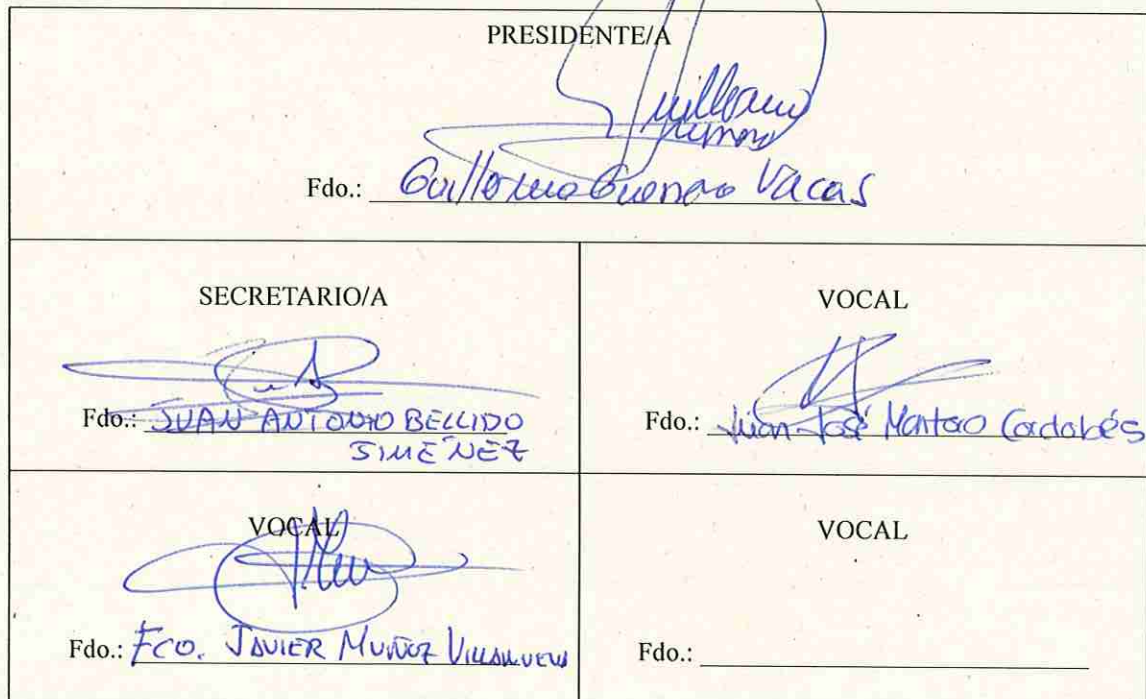 PRESIDENTE/A
Guillermo
Guerrero
Fdo.: Guillermo Guerrero Vacas
SECRETARIO/A
Fdo.: JUAN ANTONIO BELLIDO
JIMÉNEZ
VOCAL
Fdo.: Juan-José Montoro Cordobés
VOCAL
Fdo.: FCO. JAVIER MUÑOZ VILLANUEVA
VOCAL
Fdo.: